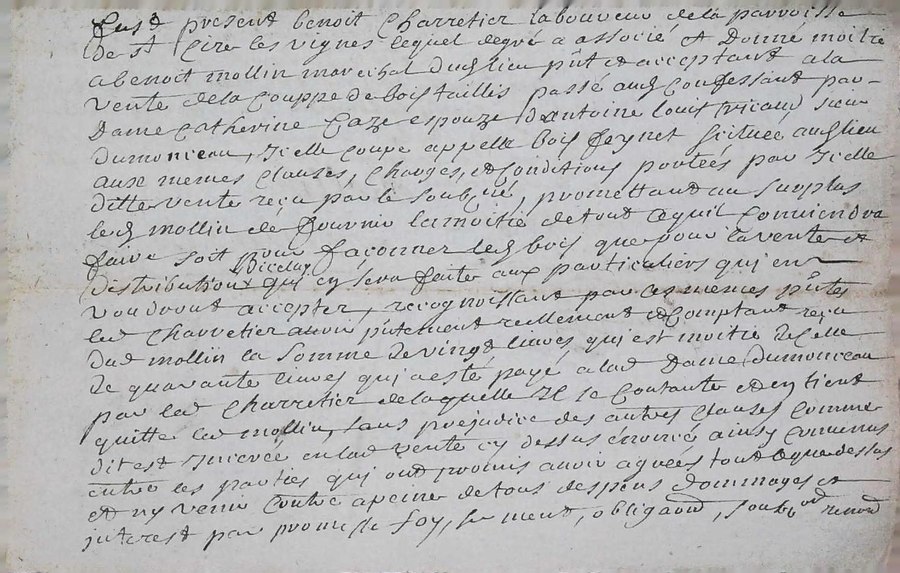 fust present benoit Charretier laboureur de la parroisse
de st Cire les vignes lequel de gré a associé et Donné moitie
a benoit mollin marechal dud lieu pnt et acceptant a la
vente de la Couppe de bois taillis passé aud Confessant par
Dame Catherine Caze espouze d antoine louis ricaud sieur
dumonceau, Icelle coupe appellé bois feynet scituée aud lieu
aux memes Clauses, Charges, et Conditions portées par Icelle
ditte vente reçu par le soubné, promettant au surplus
led mollin de fournir la moitié de tout ce quil Conviendra
faire soit pour façonner led bois que pour la vente et
distribution Diceluy qui en sera faite aux particuliers qui en
voudront accepter, recognoissant par ces memes pntes
led Charretier avoir pntement reellement et Comptant reçu
dud mollin la somme de vingt livres qui est moitie de Celle
de quarante livres qui a esté payé a lad Dame dumonceau
par led Charretier de laquelle Il se Contante et en tient
quitte led mollin, sans prejudice des autres Clauses Comme
dit est Inserée en lad vente cy dessus énoncé ainsy Convenus
entre les parties qui ont promis avoir agreés tout ce que dessus
et ny venir Contre a peine de tous despens dommages et
interest par promesse foy, serment, obligaon,